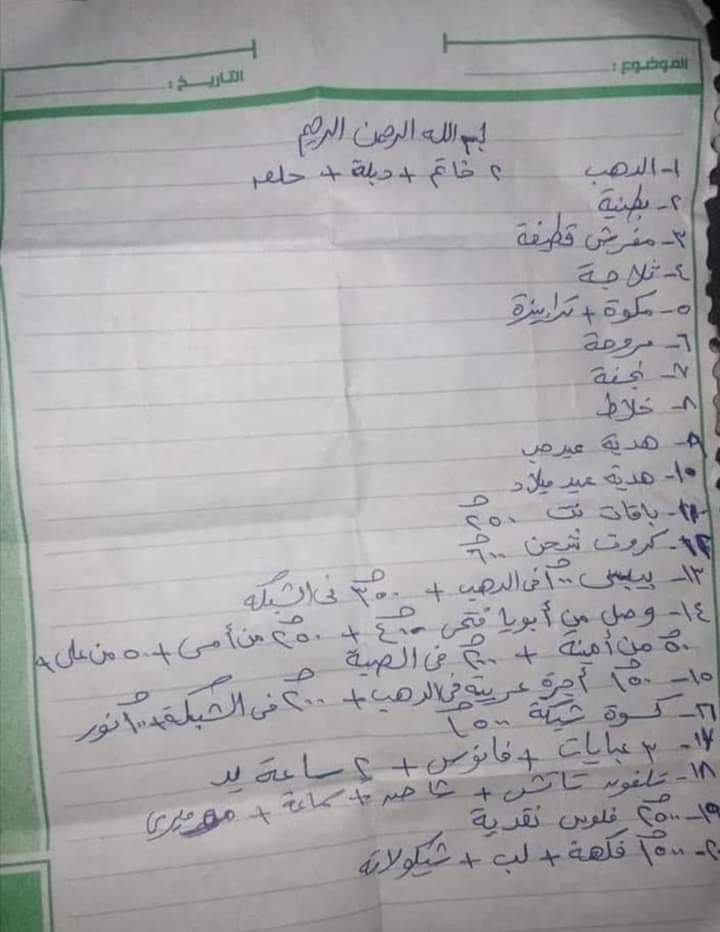 الموضوع :
التاريخ :
بسم الله الرحمن الرحيم
١- الدهب ٢ خاتم + دبلة + حلق
٢- بطنية
٣- مفرش قطيفة
٤- ثلاجة
٥- مكوة + ترابيزة
٦- مروحة
٧- نجفة
٨- خلاط
٩- هدية عيد حب
١٠- هدية عيد ميلاد
١١- باقات نت ٢٥٠ ج
١٢- كروت شحن ٦٠٠ ج
١٣- بيبسى ١٠٠ ج فى الدهب + ٣٥٠ ج فى الشبكة
١٤- وصل من أبويا فتحى ٤٠٠ ج + ٢٥٠ ج من أمى + ٥٠ من على +
٥٠ ج من أمينة + ٢٠٠ ج فى الصنية
١٥- ١٥٠ ج أجرة عربية فى الدهب + ٢٠٠ ج فى الشبكة + ١٠٠ ج نور
١٦- كسوة شبكة ١٥٠٠ ج
١٧- ٣ عبايات + فانوس + ٢ ساعة يد
١٨- تليفون تاتش + شاحن + سماعة + ميرى
١٩- ٢٥٠٠ ج فلوس نقدية
٢٠- ١٥٠٠ ج فكهة + لب + شيكولاته